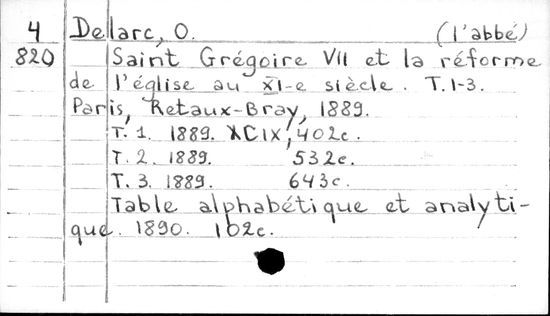 4 Delarc, O. (l'abbé)
820 Saint Grégoire VII et la réforme
de l'église au XI-e siècle. T.1-3.
Paris, Retaux-Bray, 1889.
T. 1. 1889. XCIX, 402c.
T. 2. 1889. 532c.
T. 3. 1889. 643c.
Table alphabétique et analyti-
que. 1890. 102c.